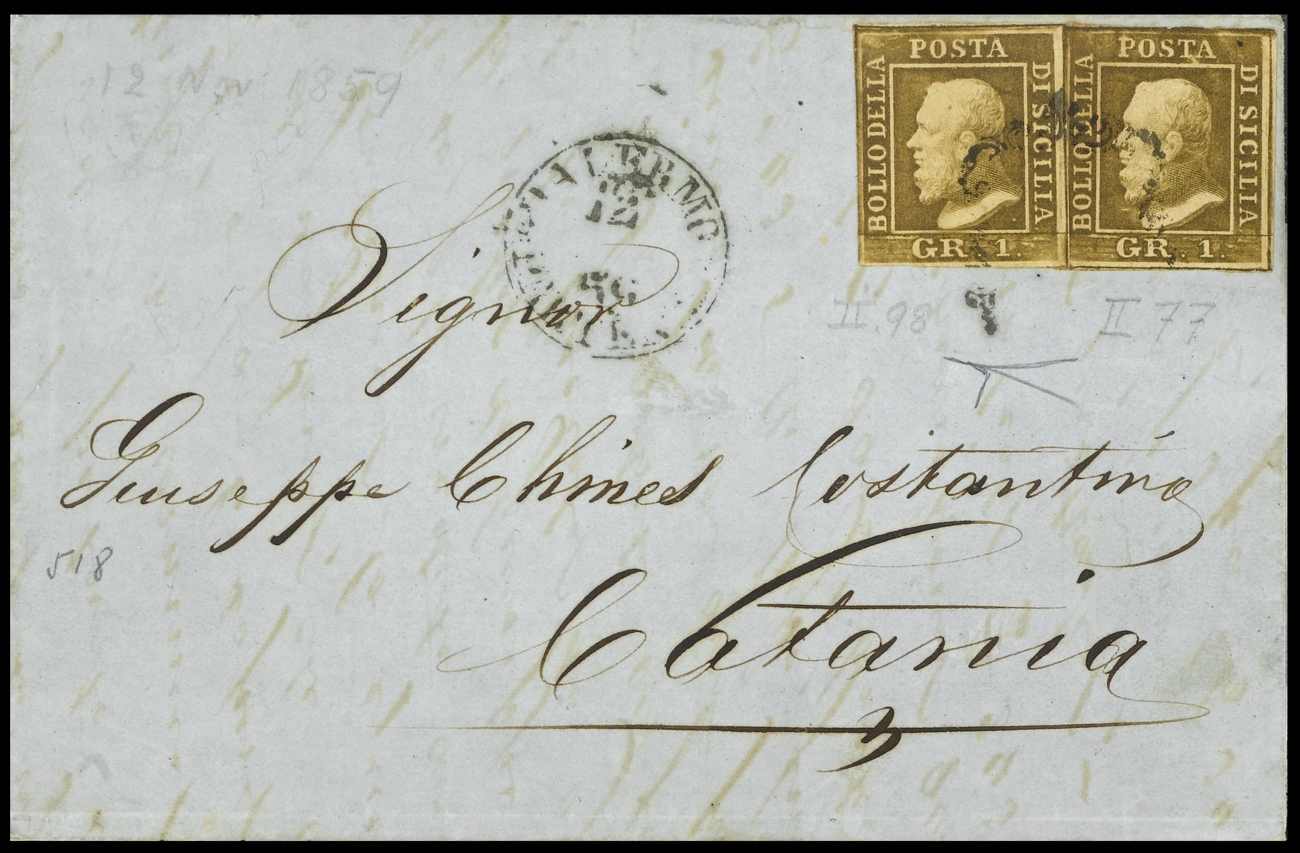 12 Nov 1859
POSTA
BOLLO DELLA
DI SICILIA
GR. 1.
POSTA
BOLLO DELLA
DI SICILIA
GR. 1.
PALERMO
12
II. 98
II 77
Signor
Giuseppe Chines Costantino
518
Catania